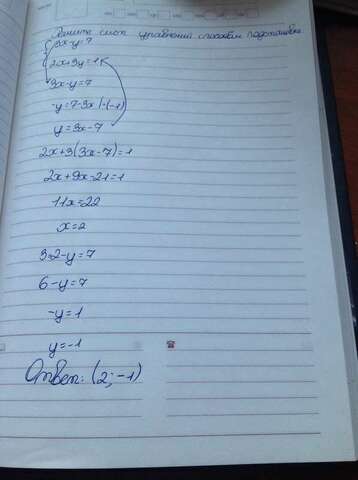 Решите сист уравнений способом подстановки
3x-y=7
2x+3y=1
3x-y=7
-y=7-3x |·(-1)
y=3x-7
2x+3(3x-7)=1
2x+9x-21=1
11x=22
x=2
3·2-y=7
6-y=7
-y=1
y=-1
Ответ: (2;-1)